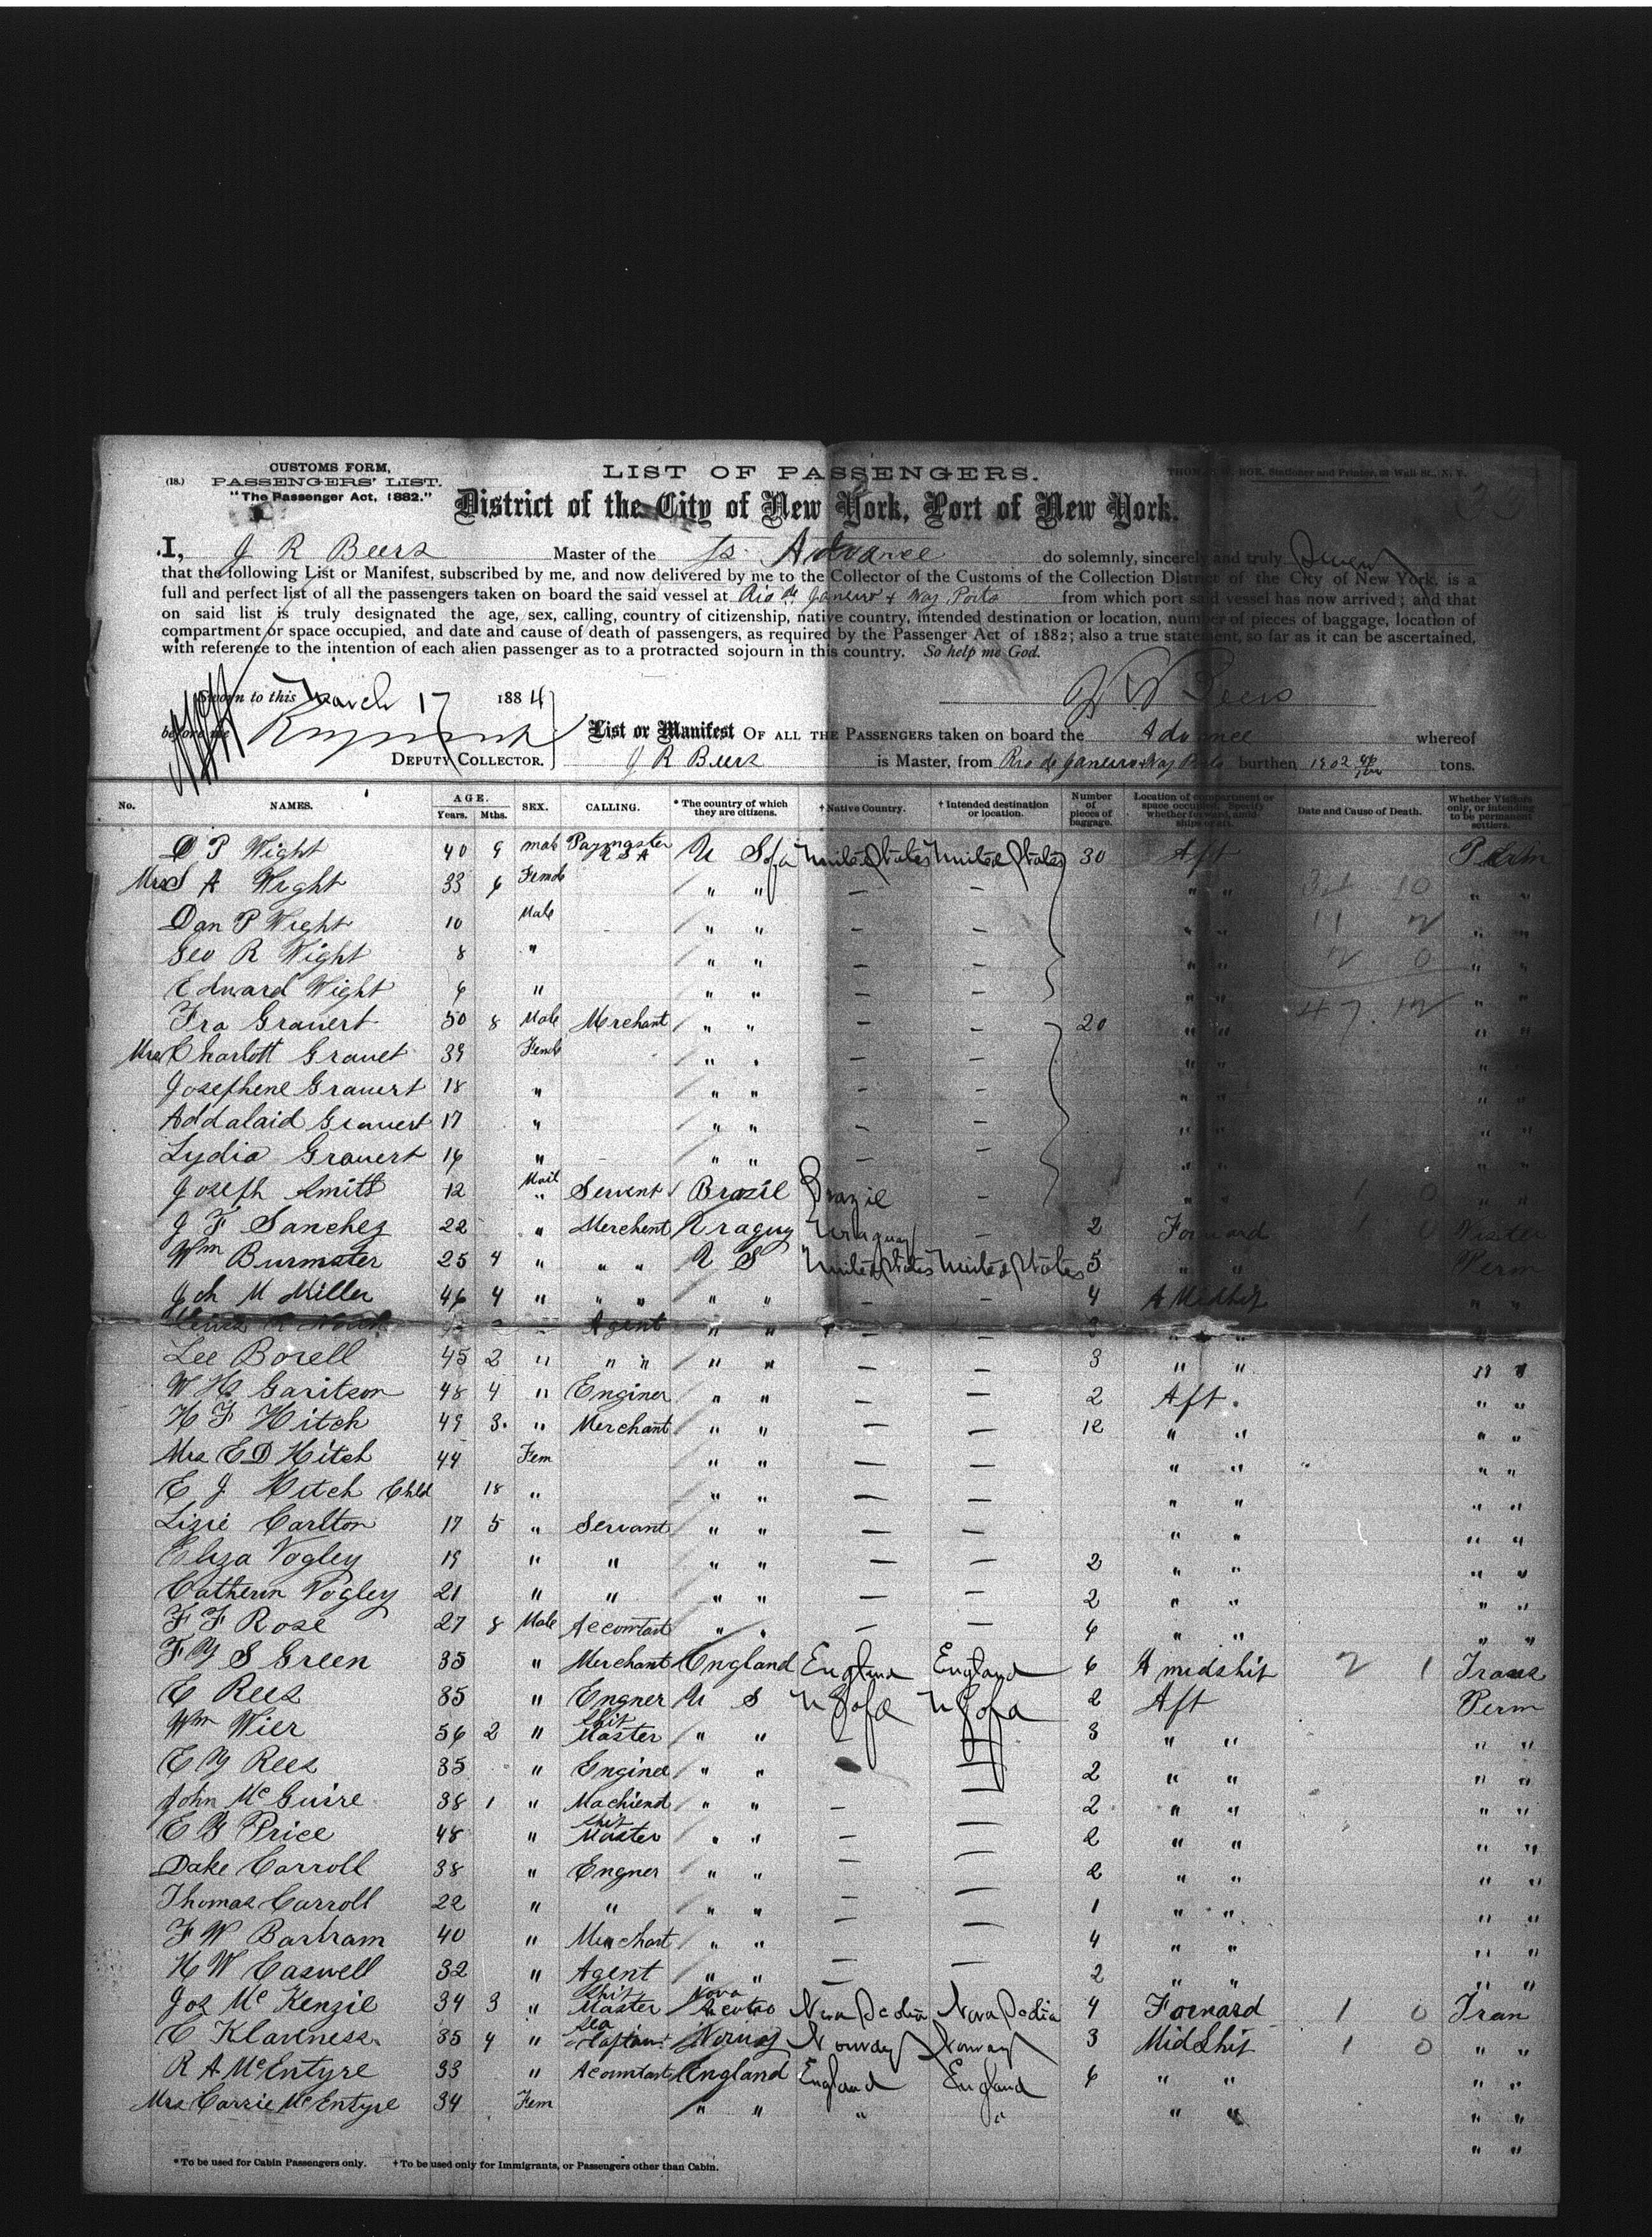 CUSTOMS FORM,
(18.) PASSENGERS' LIST.
"The Passenger Act, 1882."
LIST OF PASSENGERS.
District of the City of New York, Port of New York.
I, J R Beers Master of the Ss. Advance do solemnly, sincerely and truly Swear
that the following List or Manifest, subscribed by me, and now delivered by me to the Collector of the Customs of the Collection District of the City of New York, is a
full and perfect list of all the passengers taken on board the said vessel at Rio de Janeiro & Way Ports from which port said vessel has now arrived; and that
on said list is truly designated the age, sex, calling, country of citizenship, native country, intended destination or location, number of pieces of baggage, location of
compartment or space occupied, and date and cause of death of passengers, as required by the Passenger Act of 1882; also a true statement, so far as it can be ascertained,
with reference to the intention of each alien passenger as to a protracted sojourn in this country. So help me God.
Sworn to this March 17 1884
J R Beers
before me
List or Manifest OF ALL THE PASSENGERS taken on board the Advance whereof
DEPUTY COLLECTOR. J R Beers is Master, from Rio de Janeiro & Way Ports burthen 1902 tons.
No. NAMES. AGE. Years. Mths. SEX. CALLING. * The country of which they are citizens. † Native Country. † Intended destination or location. Number of pieces of baggage. Location of compartment or space occupied. Specify whether forward, amidships or aft. Date and Cause of Death. Whether Visitors only, or intending to be permanent settlers.
D P Wight 40 9 male Paymaster U S A U S of a United States United States 30 Aft Perm
Mrs S A Wight 33 6 Female " " — — " " 34 10 " "
Dan P Wight 10 Male " " — — " " 11 2 " "
Geo R Wight 8 " " " — — " " 2 0 " "
Edward Wight 6 " " " — — " " 47 12 " "
Fra Grauert 50 8 Male Merchant " " — — 20 " " " "
Mrs Charlott Grauet 39 Female " " — — " " " "
Josephene Grauert 18 " " " — — " " " "
Addalaid Grauert 17 " " " — — " " " "
Lydia Grauert 16 " " " — — " " " "
Joseph Smith 12 Mail " Servent Brazil Brazil — " " 1 0 " "
J F Sanchez 22 " Merchent Uraguy Uraguay — 2 Forward 1 0 Visiter
Wm Burmster 25 4 " " " U S United States United States 5 " " Perm
Joh M Miller 46 4 " " " " " — — 4 A Midship " "
Agent " " — — 3 " " " "
Lee Borell 45 2 " " " " " — — 3 " " " "
W H Garitson 48 4 " Enginer " " — — 2 Aft. " "
H F Hitch 49 3 " Merchant " " — — 12 " " " "
Mrs E D Hitch 44 Fem " " — — " " " "
E J Hitch Child 18 " " " — — " " " "
Lizie Carlton 17 5 " Servant " " — — " " " "
Eliza Vogley 19 " " " " — — 2 " " " "
Catherin Vogley 21 " " " " — — 2 " " " "
F F Rose 27 8 Male Accountant " " — — 6 " " " "
F Y S Green 35 " Merchant England England England 6 A midship 2 1 Trans
E Rees 35 " Engner U S U S of a U S of a 2 Aft Perm
Wm Wier 56 2 " Ship Master " " — — 3 " " " "
E Y Rees 35 " Enginer " " — 2 " " " "
John McGuire 38 1 " Machienst " " — — 2 " " " "
E G Price 48 " Ship Master " " — — 2 " " " "
Dake Carroll 38 " Engner " " — — 2 " " " "
Thomas Carroll 22 " " " " — — 1 " " " "
F W Bartram 40 " Merchant " " — — 4 " " " "
H W Caswell 32 " Agent " " — — 2 " " " "
Jos McKenzie 34 3 " Ship Master Nova Scotia Nova Scotia Nova Scotia 4 Forward 1 0 Tran
E Klarness 35 4 " Sea Captain Norway Norway Norway 3 MidShip 1 0 " "
R A McEntyre 33 " Accountant England England England 6 " " " "
Mrs Carrie McEntyre 34 Fem " " " " " " " "
" "
* To be used for Cabin Passengers only. † To be used only for Immigrants, or Passengers other than Cabin.